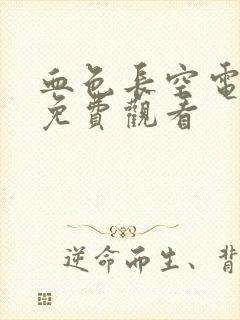 血色長空電
免費觀看
逆命而生、背